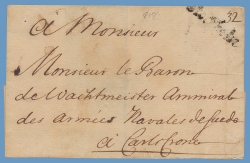 32
à Monsieur
Monsieur le Baron
de Wachtmeister Ammiral
des Armées Navales de suede
à Carlscrone